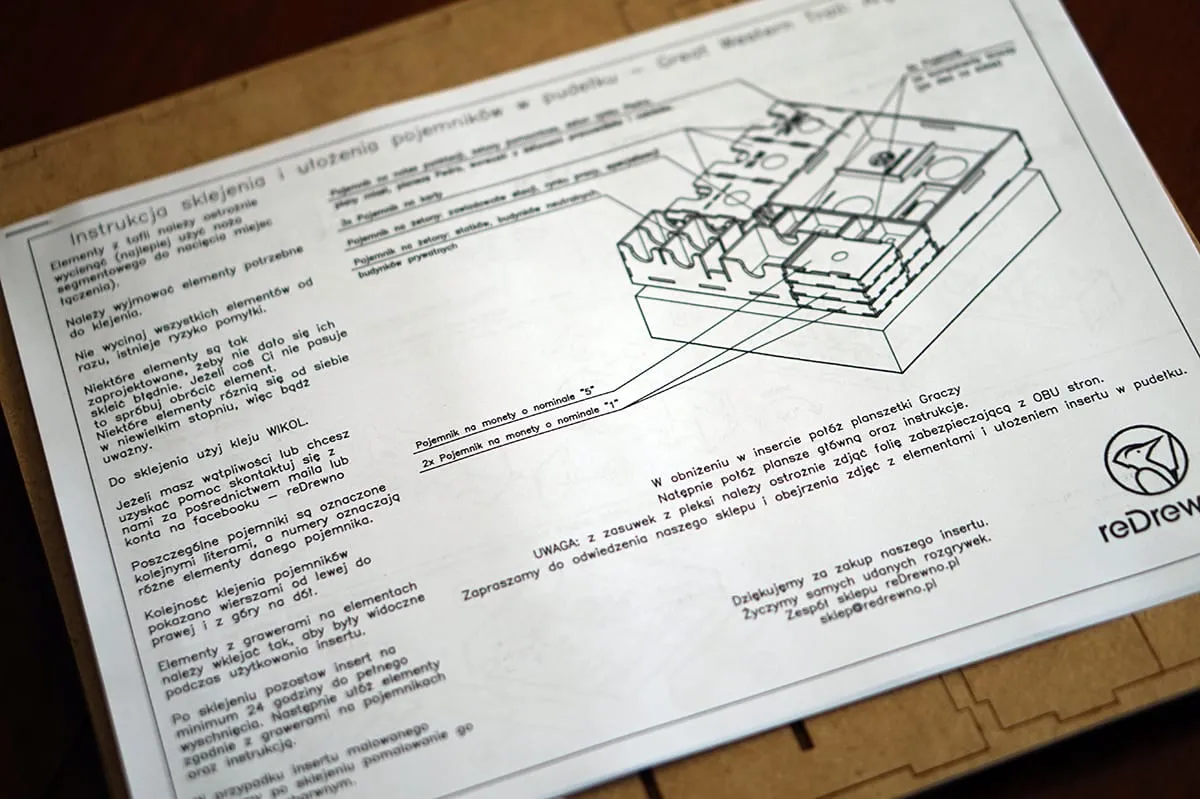 Instrukcja sklejenia i ułożenia pojemników w pudełku - Great Western Trail:
Elementy z tafli należy ostrożnie
wycienąć (najlepiej użyć noża
segmentowego do nacięcia miejec
łączenia).
Należy wyjmować elementy potrzebne
do klejenia.
Nie wycinaj wszystkich elementów od
razu, istnieje ryzyko pomyłki.
Niektóre elementy są tak
zaprojektowane, żeby nie dało się ich
skleić błędnie. Jeżeli coś Ci nie pasuje
to spróbuj obrócić element.
Niektóre elementy różnią się od siebie
w niewielkim stopniu, więc bądź
uważny.
Do sklejenia użyj kleju WIKOL.
Jeżeli masz wątpliwości lub chcesz
uzyskać pomoc skontaktuj się z
nami za pośrednictwem maila lub
konta na facebooku - reDrewno
Poszczególne pojemniki są oznaczone
kolejnymi literami, a numery oznaczają
różne elementy danego pojemnika.
Kolejność klejenia pojemników
pokazano wierszami od lewej do
prawej i z góry na dół.
Elementy z grawerami na elementach
należy wklejać tak, aby były widoczne
podczas użytkowania insertu.
Po sklejeniu pozostaw insert na
minimum 24 godziny do pełnego
wyschnięcia. Następnie ułóż elementy
zgodnie z grawerami na pojemnikach
oraz instrukcją.
przypadku insertu malowanego
po sklejeniu pomalowanie go
3x Pojemnik na karty
Pojemnik na żetony:
Pojemnik na żetony: statków, budynków neutralnych,
budynków prywatnych
Pojemnik na monety o nominale "5"
2x Pojemnik na monety o nominale "1"
W obniżeniu w insercie połóż planszetki Graczy
Natępnie połóż plansze główną oraz instrukcje.
UWAGA: z zasuwek z pleksi należy ostrożnie zdjąć folię zabezpieczającą z OBU stron.
Zapraszamy do odwiedzenia naszego sklepu i obejrzenia zdjęć z elementami i ułożeniem insertu w pudełku.
Dziękujemy za zakup naszego insertu.
Życzymy samych udanych rozgrywek.
Zespół sklepu reDrewno.pl
sklep@redrewno.pl
reDrew